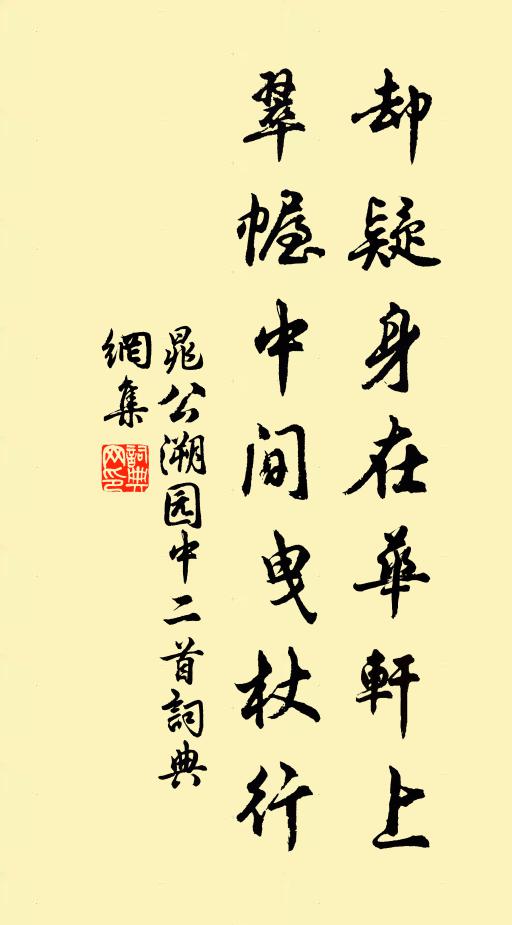 却疑身在華軒上
翠幄中間曳杖行
晁公溯园中二首詞典
網集
詞典
网印